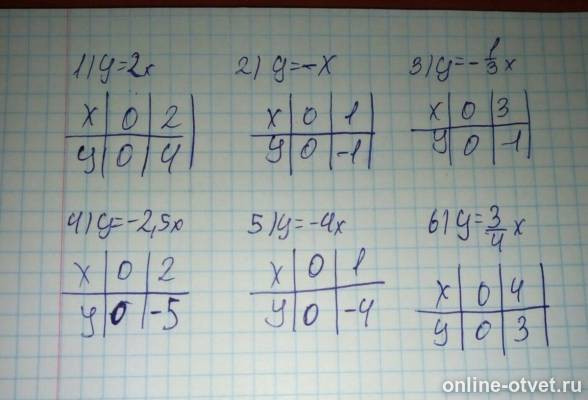 1) y=2x
x | 0 | 2
y | 0 | 4
2) y=-x
x | 0 | 1
y | 0 | -1
3) y=-1/3x
x | 0 | 3
y | 0 | -1
4) y=-2,5x
x | 0 | 2
y | 0 | -5
5) y=-4x
x | 0 | 1
y | 0 | -4
6) y=3/4x
x | 0 | 4
y | 0 | 3
online-otvet.ru